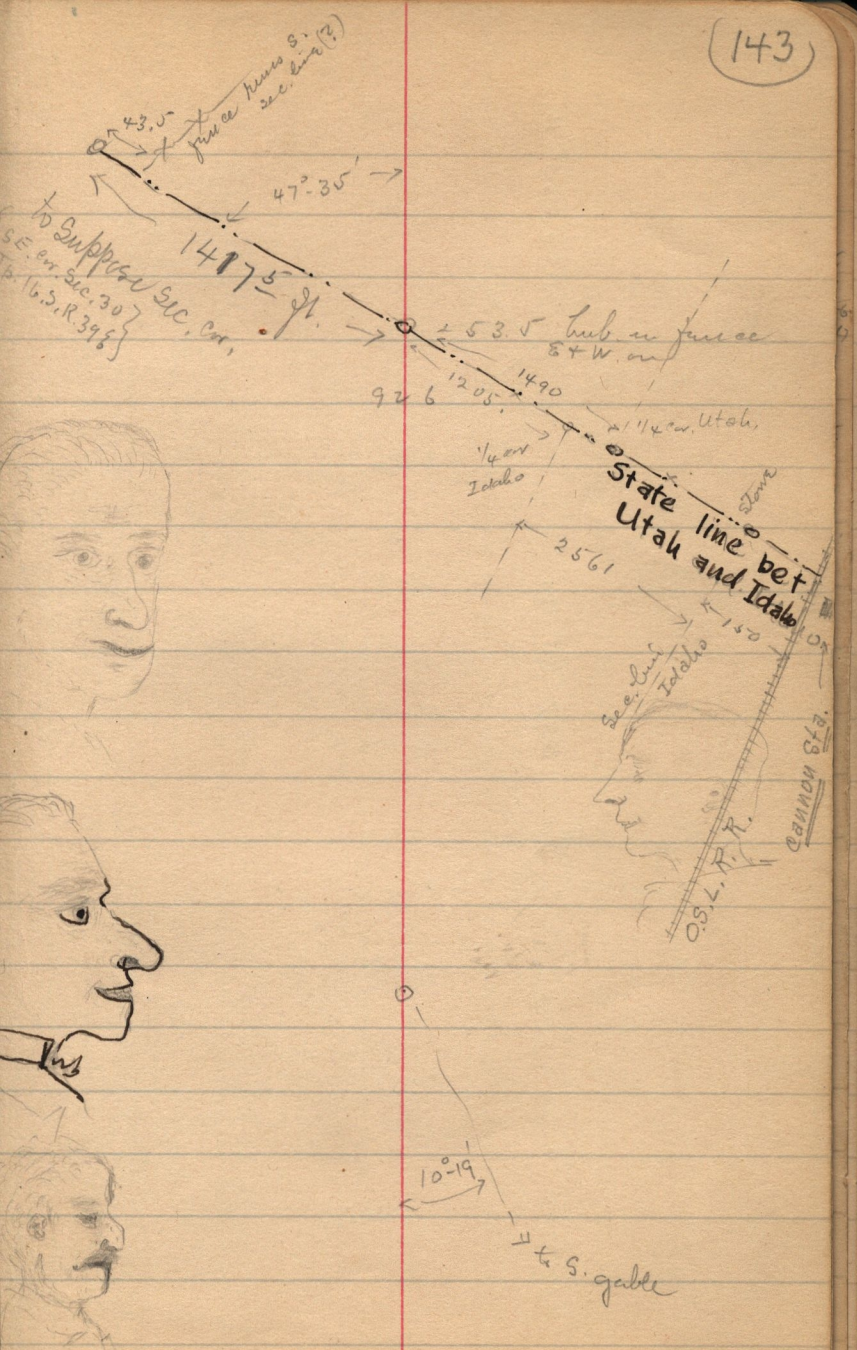 143
43.5
fence runs S.
sec. line (?)
47°-35'
to Suppose Sec. Cor.
S.E. cor. Sec. 30
Tp. 16. S. R.
1417 5 ft.
± 53.5 hub in fence
E + W. on
926
1205.
1490
1/4 cor. Utah.
1/4 cor
Idaho
stone
State line bet
Utah and Idaho
2561
150
Sec. line
Idaho
Cannon Sta.
O.S.L.R.R.
10°-19'
to S. gable